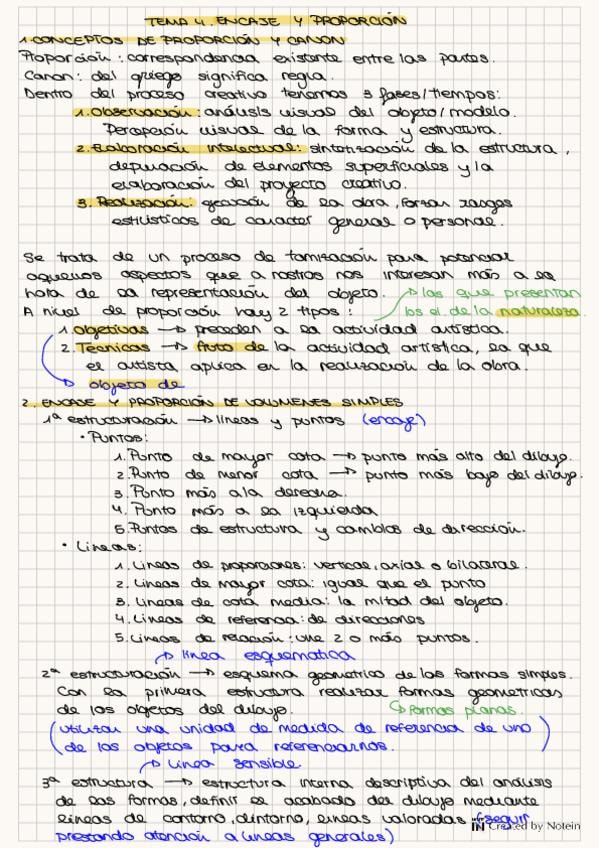 TEMA 4. ENCAJE Y PROPORCIÓN
1. CONCEPTOS DE PROPORCIÓN Y CANON
Proporción: correspondencia existente entre las partes.
Canon: del griego significa regla.
Dentro del proceso creativo tenemos 3 fases/tiempos:
1. Observación: análisis visual del objeto/modelo.
Percepción visual de la forma y estructura.
2. Elaboración intelectual: sintetización de la estructura,
depuración de elementos superficiales y la
elaboración del proyecto creativo.
3. Realización: ejecución de la obra, forzan rasgos
estilísticos de caracter general o personal.
Se trata de un proceso de tamización para potenciar
aquellos aspectos que a nostros nos interesan más a la
hora de la representación del objeto.
→ las que presentan
A nivel de proporción hay 2 tipos:
los el. de la naturaleza.
1. Objetivas → preceden a la actividad artística.
2. Técnicas → fruto de la actividad artística, la que
el artista aplica en la realización de la obra.
→ objeto de
2. ENCAJE Y PROPORCIÓN DE VOLUMENES SIMPLES
1ª estructuración → lineas y puntos (encaje)
• Puntos:
1. Punto de mayor cota → punto más alto del dibujo.
2. Punto de menor cota → punto más bajo del dibujo.
3. Punto más a la derecha.
4. Punto más a la izquierda
5. Puntos de estructura y cambios de dirección.
• Lineas:
1. Lineas de proporciones: vertical, axial o bilateral.
2. Lineas de mayor cota: igual que el punto
3. Lineas de cota media: la mitad del objeto.
4. Lineas de referencia: de direcciones
5. Lineas de relación: une 2 o más puntos.
→ linea esquematica
2ª estructuración → esquema geometrico de las formas simples.
Con la primera estructura realizar formas geometricas
de los objetos del dibujo.
→ formas planas.
(utilizar una unidad de medida de referencia de uno
de los objetos para referenciarnos.)
→ linea sensible
3ª estructura → estructura interna descriptiva del análisis
de las formas, definir el acabado del dibujo mediante
lineas de contorno, dintorno, lineas valoradas (seguir
prestando atención a lineas generales)
Created by Notein